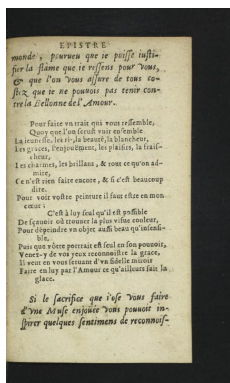 EPISTRE
monde, pourueu que ie puisse iusti-
fier la flâme que ie ressens pour vous,
& que l'on vous assure de tous co-
stez que ie ne pouuois pas tenir con-
tre la Bellonne de l'Amour.
Pour faire vn trait qui vous ressemble,
Quoy que l'on sceust voir ensemble
La ieunesse, les ris, la beauté, la blancheur,
Les graces, l'enjouëment, les plaisirs, la frais-
cheur,
Les charmes, les brillans, & tout ce qu'on ad-
mire,
Ce n'est rien faire encore, & si c'est beaucoup
dire.
Pour voir vostre peinture il faut estre en mon
cœur;
C'est à luy seul qu'il est possible
De sçauoir où trouuer la plus viue couleur,
Pour dépeindre vn objet aussi beau qu'insensi-
ble,
Puis que vôtre portrait est seul en son pouuoir,
Venez-y de vos yeux reconnoistre la grace,
Il veut en vous seruant d'vn fidelle miroir
Faire en luy par l'Amour ce qu'ailleurs fait la
glace.
Si le sacrifice que i'ose vous faire
d'vne Muse enjouée vous pouuoit in-
spirer quelques sentimens de reconnois-